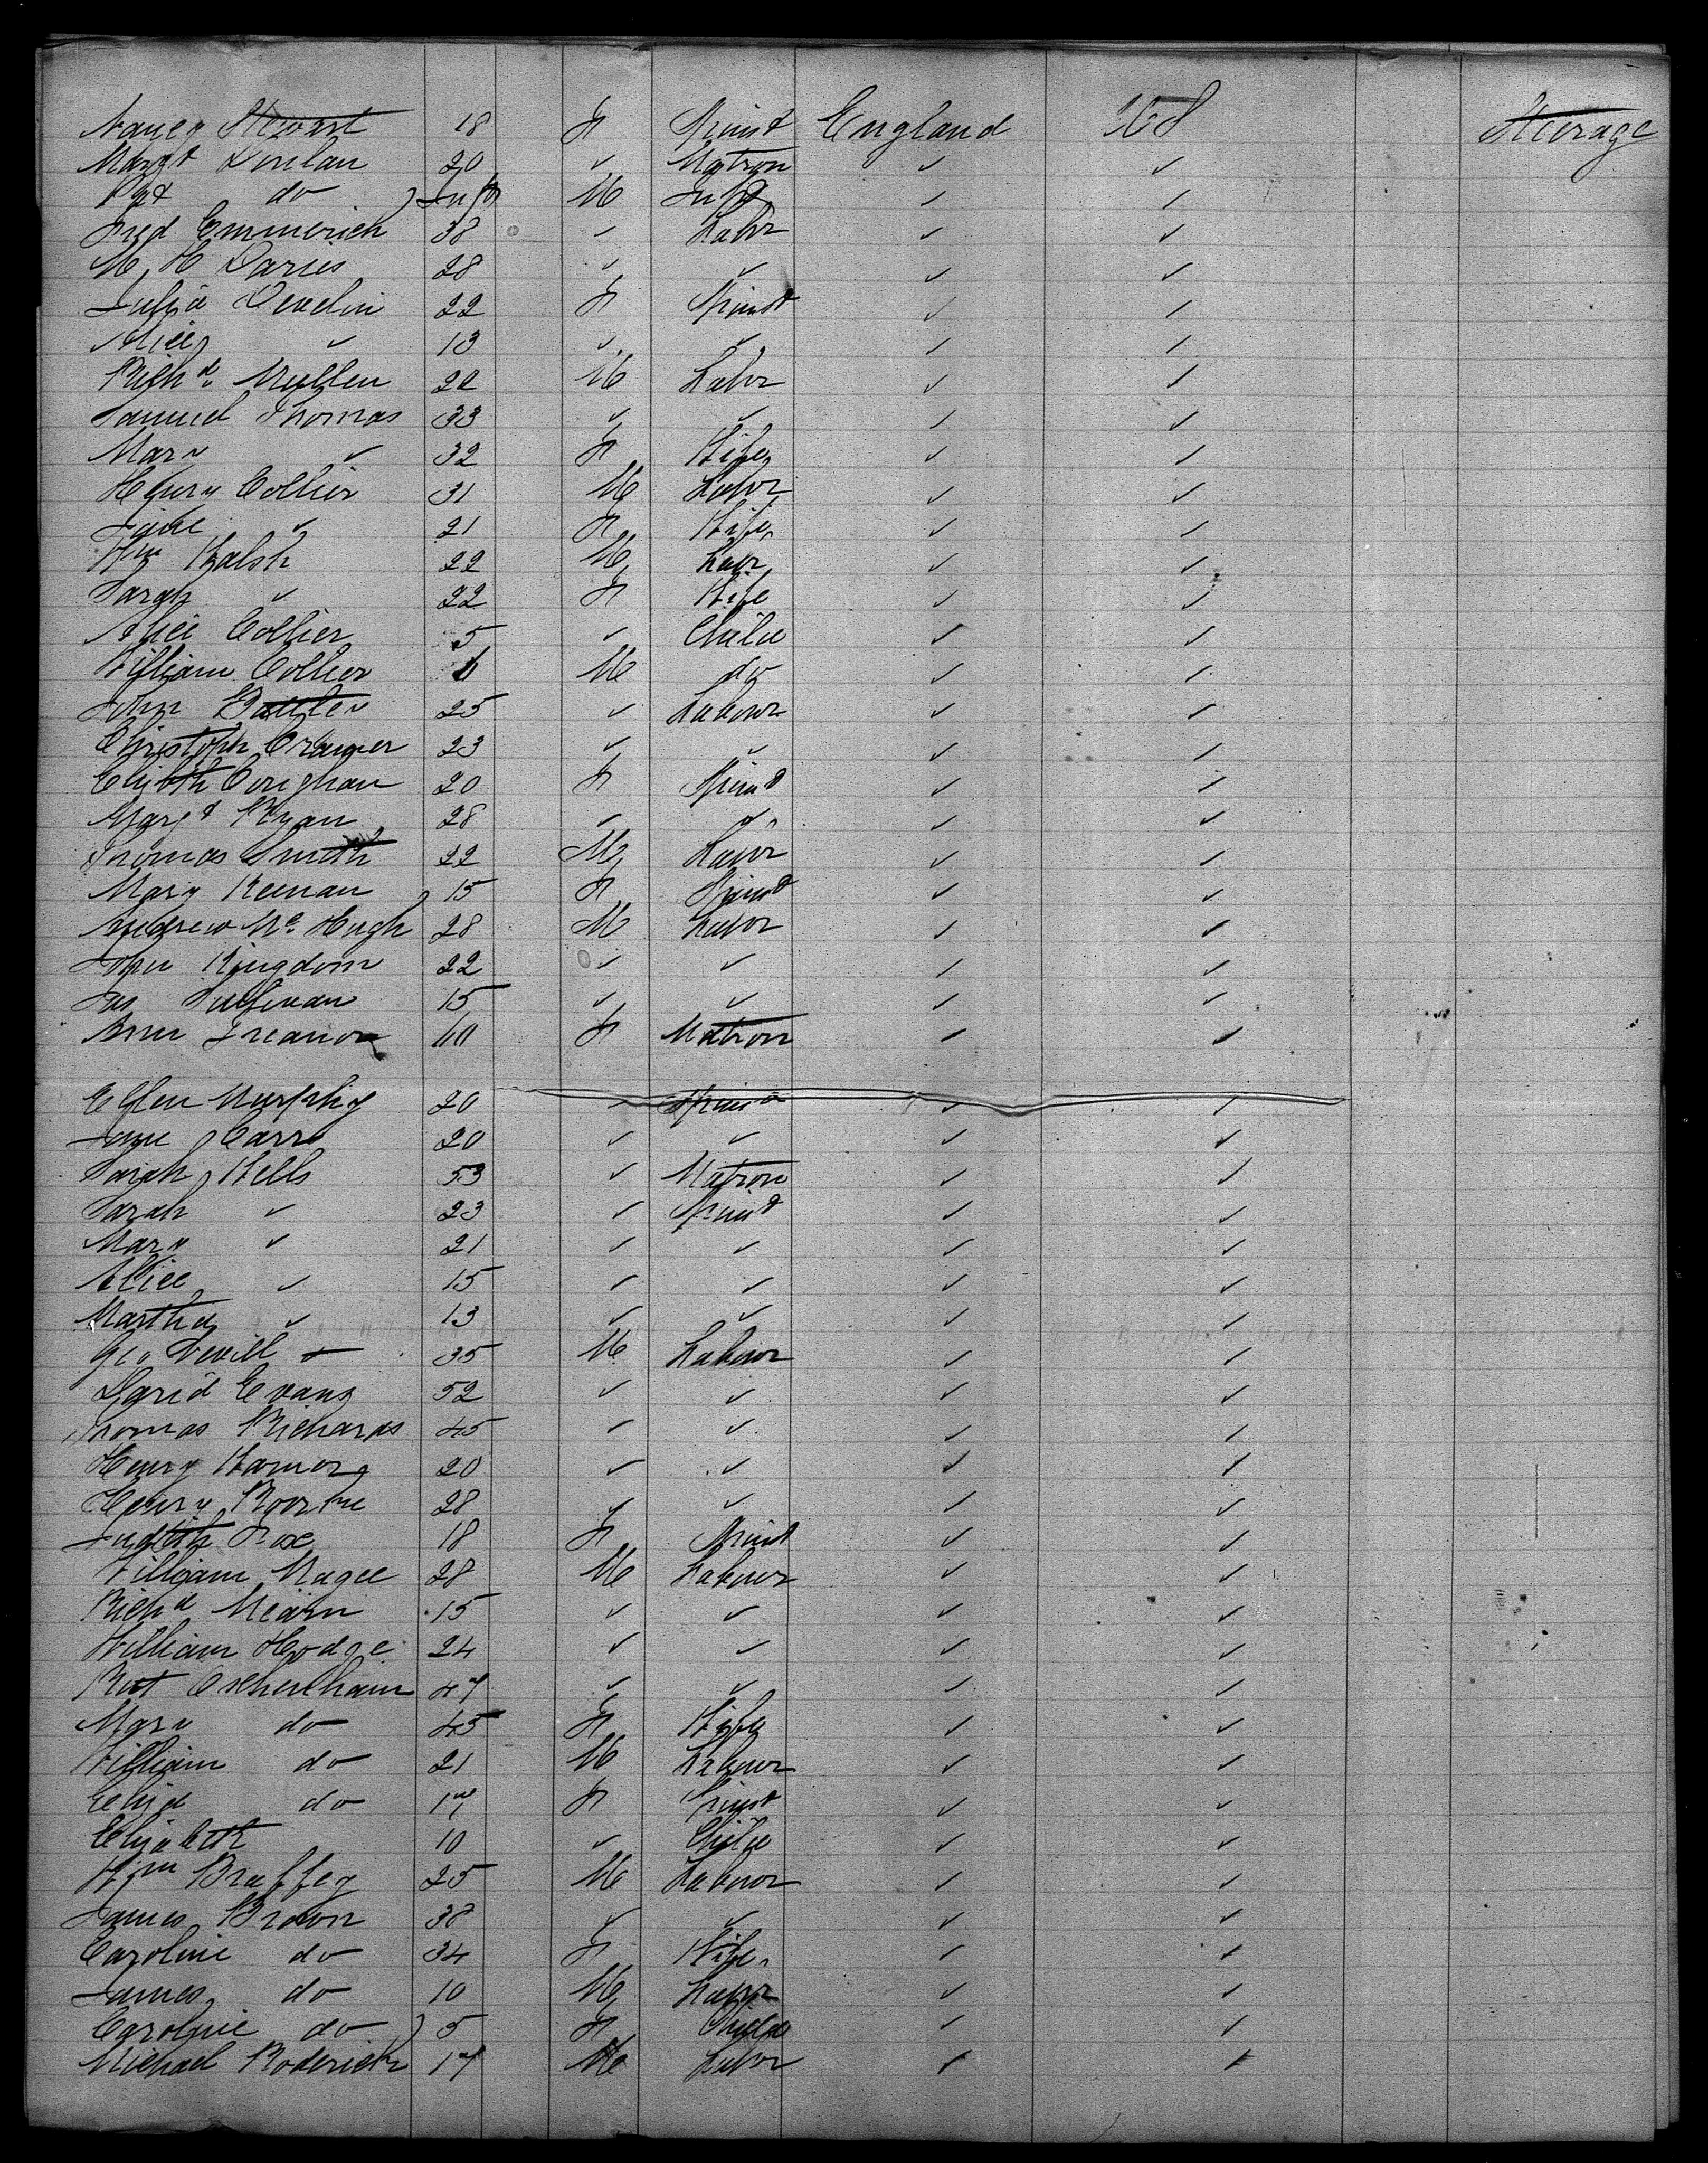 Nancy Stewart 18 F Spinst England US Steerage
Margt Donlan 20 ✓ Matron ✓ ✓
Pat do } Inft M Inft ✓ ✓
Fred Emmerich 38 ✓ Labr ✓ ✓
M H Davies 28 ✓ ✓ ✓ ✓
Julia Develin 22 F Spinst ✓ ✓
Alice ✓ 13 ✓ ✓ ✓ ✓
Richd. Mullen 22 M Labr ✓ ✓
Samuel Thomas 33 ✓ ✓ ✓ ✓
Mary ✓ 32 F Wife ✓ ✓
Henry Collier 31 M Labr ✓ ✓
Jane ✓ 21 F Wife ✓ ✓
Wm Walsh 22 M Labr ✓ ✓
Sarah ✓ 22 F Wife ✓ ✓
Alice Collier 5 ✓ Child ✓ ✓
William Collier M do ✓ ✓
John 25 ✓ Labour ✓ ✓
Christoph Cramer 23 ✓ ✓ ✓ ✓
Elizbth Corighan 20 F Spinst ✓ ✓
Margt Ryan 28 ✓ ✓ ✓ ✓
Thomas Smith 22 M Labr ✓ ✓
Mary Keenan 15 F Spinst ✓ ✓
Andrew Mc Hugh 28 M Labor ✓ ✓
John Kingdom 22 ✓ ✓ ✓ ✓
Jas Sullivan 15 ✓ ✓ ✓ ✓
Treanor 60 F Matron ✓ ✓
Ellen Murphy 20 ✓ Spinst ✓ ✓
Jane Carr 20 ✓ ✓ ✓ ✓
Sarah Wells 53 ✓ Matron ✓ ✓
Sarah ✓ 23 ✓ Spinst ✓ ✓
Mary ✓ 21 ✓ ✓ ✓ ✓
Alice ✓ 15 ✓ ✓ ✓ ✓
Martha ✓ 13 ✓ ✓ ✓ ✓
Geo Nevill 35 M Labour ✓ ✓
David Evans 52 ✓ ✓ ✓ ✓
Thomas Richards 45 ✓ ✓ ✓ ✓
Henry Warner 20 ✓ ✓ ✓ ✓
Henry Roorke 28 ✓ ✓ ✓ ✓
Judith Fox 18 F Spinst ✓ ✓
William Magee 28 M Labour ✓ ✓
Richd Mearn 15 ✓ ✓ ✓ ✓
William Hodge 24 ✓ ✓ ✓ ✓
Robt Oxhenham 47 ✓ ✓ ✓ ✓
Mary do 45 F Wife ✓ ✓
William do 21 M Labour ✓ ✓
Eliza do 17 F Spinst ✓ ✓
Elizabeth 10 ✓ Child ✓ ✓
Wm Braffey 25 M Labour ✓ ✓
James Brown 38 ✓ ✓ ✓ ✓
Caroline do 34 F Wife ✓ ✓
James do 10 M Labr ✓ ✓
Caroline do } 5 F Child ✓ ✓
Michael Roderick 17 M Labr ✓ ✓